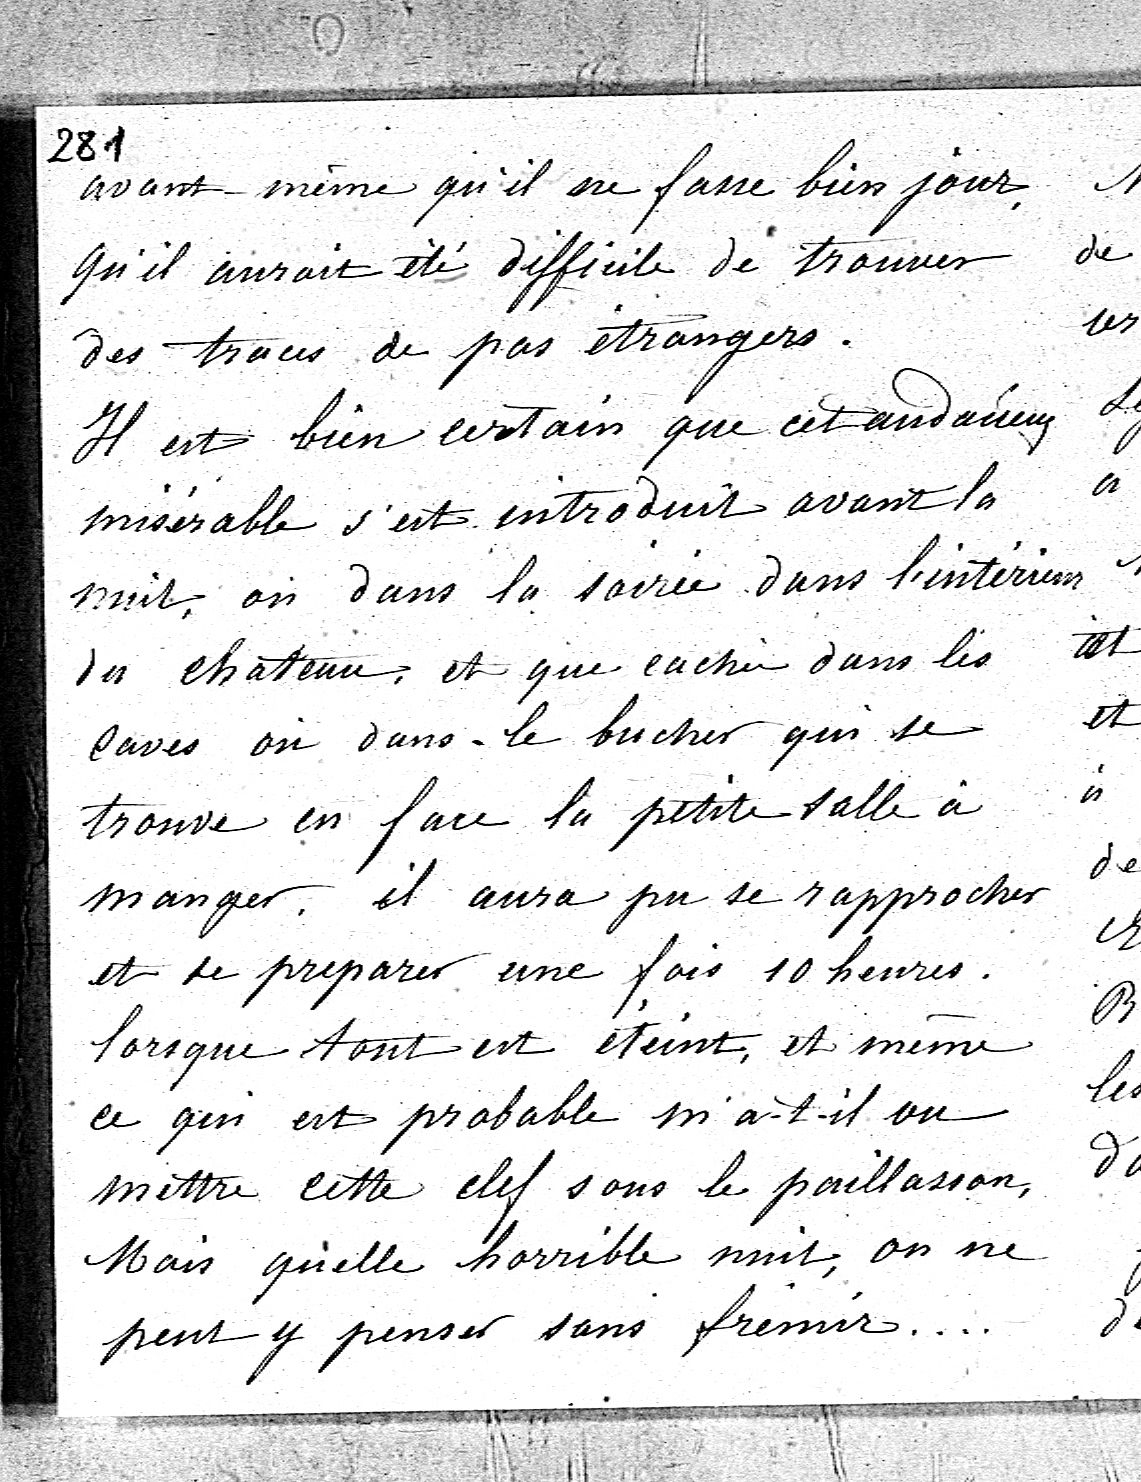 281
avant même qu'il ne fasse bien jour,
Qu'il aurait été difficile de trouver
des traces de pas étrangers.
Il est bien certain que cet audacieux
misérable s'est introduit avant la
nuit, ou dans la soirée dans l'intérieur
du chateau, et que caché dans les
caves ou dans le bucher qui se
trouve en face la petite salle à
manger. il aura pu se rapprocher
et se préparer une fois 10 heures.
lorsque tout est éteint, et même
ce qui est probable m'a-t-il vu
mettre cette clef sous le paillasson,
Mais quelle horrible nuit, on ne
peut y penser sans frémir....
de
et
et
à
de
les